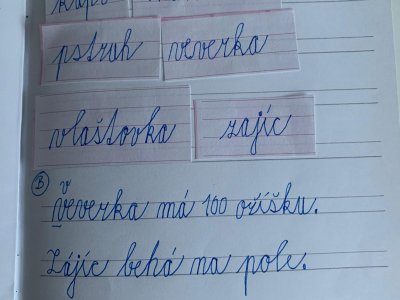 pstruh veverka
vlaštovka zajíc
B v
veverka má 100 oříšku.
Zájíc behá na pole.